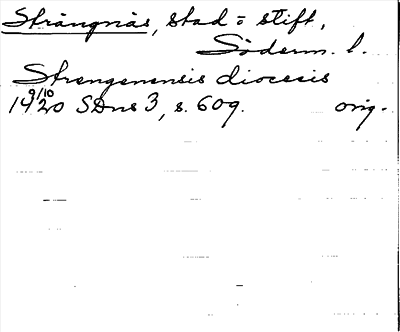 Strängnäs, stad o stift,
Söderm. l.
Strengenensis diocesis
14 9/10 20 SDns 3, s. 609. orig.